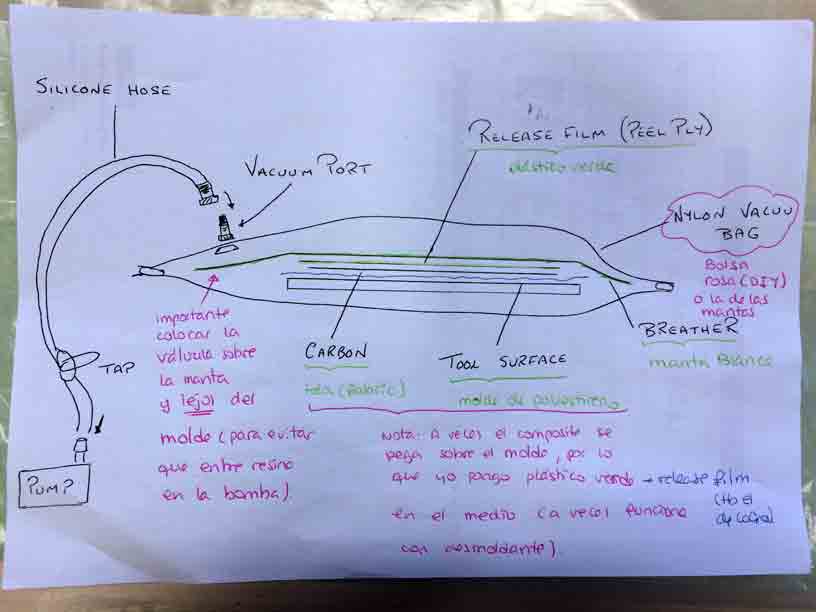 SILICONE HOSE
VACUUM PORT
RELEASE FILM (PEEL PLY)
plástico verde
NYLON VACUU
BAG
Bolsa
rosa (DIY)
o la de las
mantas
BREATHER
manta Blanca
TAP
PUMP
importante
colocar la
válvula sobre
la manta
y lejos del
molde (para evitar
que entre resina
en la bomba).
CARBON
tela (fabric)
TOOL SURFACE
molde de
Nota: A veces el composite se
pega sobre el molde, por lo
que yo pongo plástico verde → release film
en el medio (a veces funciona
con desmoldante).